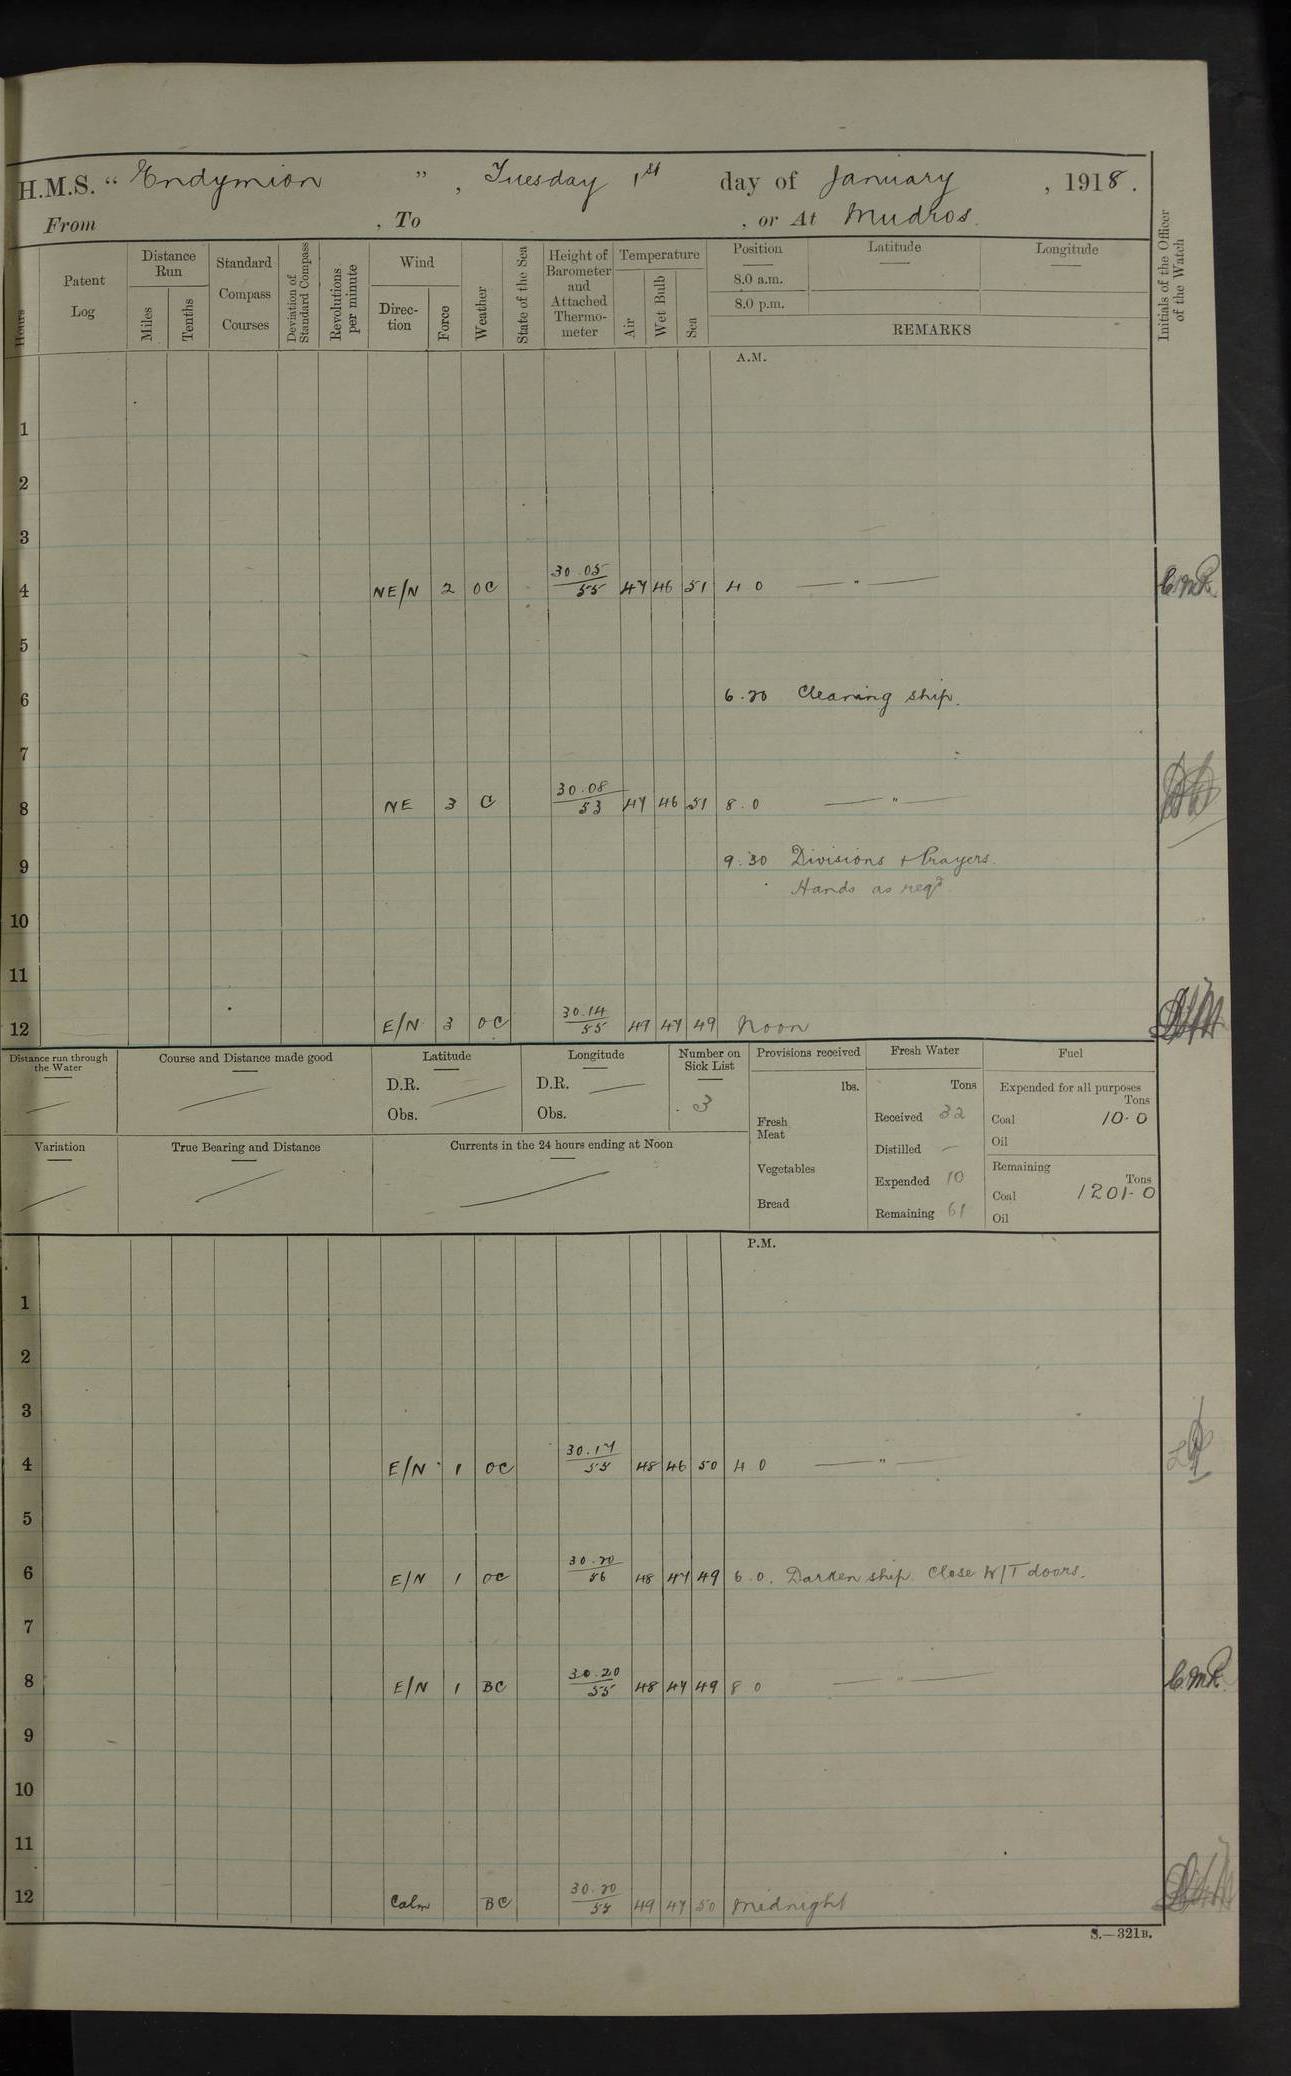 H.M.S. " Endymion ", Tuesday 1st day of January, 1918.
From , To , or At Mudros.
Hours
Patent Log
Distance Run
Miles
Tenths
Standard Compass Courses
Deviation of Standard Compass
Revolutions per minute
Wind
Direc-tion
Force
Weather
State of the Sea
Height of Barometer and Attached Thermo-meter
Temperature
Air
Wet Bulb
Sea
Position
8.0 a.m.
8.0 p.m.
Latitude
Longitude
REMARKS
Initials of the Officer of the Watch
A.M.
1
2
3
4 NE/N 2 OC 30.05/55 47 46 51 4 0 — " — C.M.R.
5
6 6.20 Cleaning ship.
7
8 NE 3 C 30.08/53 47 46 51 8.0 — " —
9 9.30 Divisions + Prayers.
Hands as reqd
10
11
12 E/N 3 OC 30.14/55 49 47 49 Noon
Distance run through the Water
Course and Distance made good
Latitude
D.R.
Obs.
Longitude
D.R.
Obs.
Number on Sick List
3
Variation
True Bearing and Distance
Currents in the 24 hours ending at Noon
Provisions received
lbs.
Fresh Meat
Vegetables
Bread
Fresh Water
Tons
Received 32
Distilled —
Expended 10
Remaining 61
Fuel
Expended for all purposes
Tons
Coal 10.0
Oil
Remaining
Tons
Coal 1201.0
Oil
P.M.
1
2
3
4 E/N 1 OC 30.17/55 48 46 50 4 0 — " —
5
6 E/N 1 OC 30.20/56 48 47 49 6.0. Darken ship. Close W/T doors.
7
8 E/N 1 BC 30.20/55 48 47 49 8 0 — " — C.M.R.
9
10
11
12 Calm BC 30.20/55 49 47 50 Midnight
S.—321B.